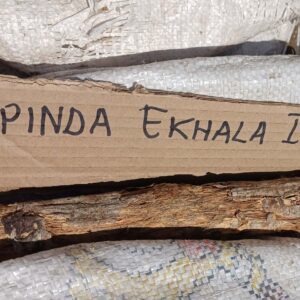 PINDA EKHALA I